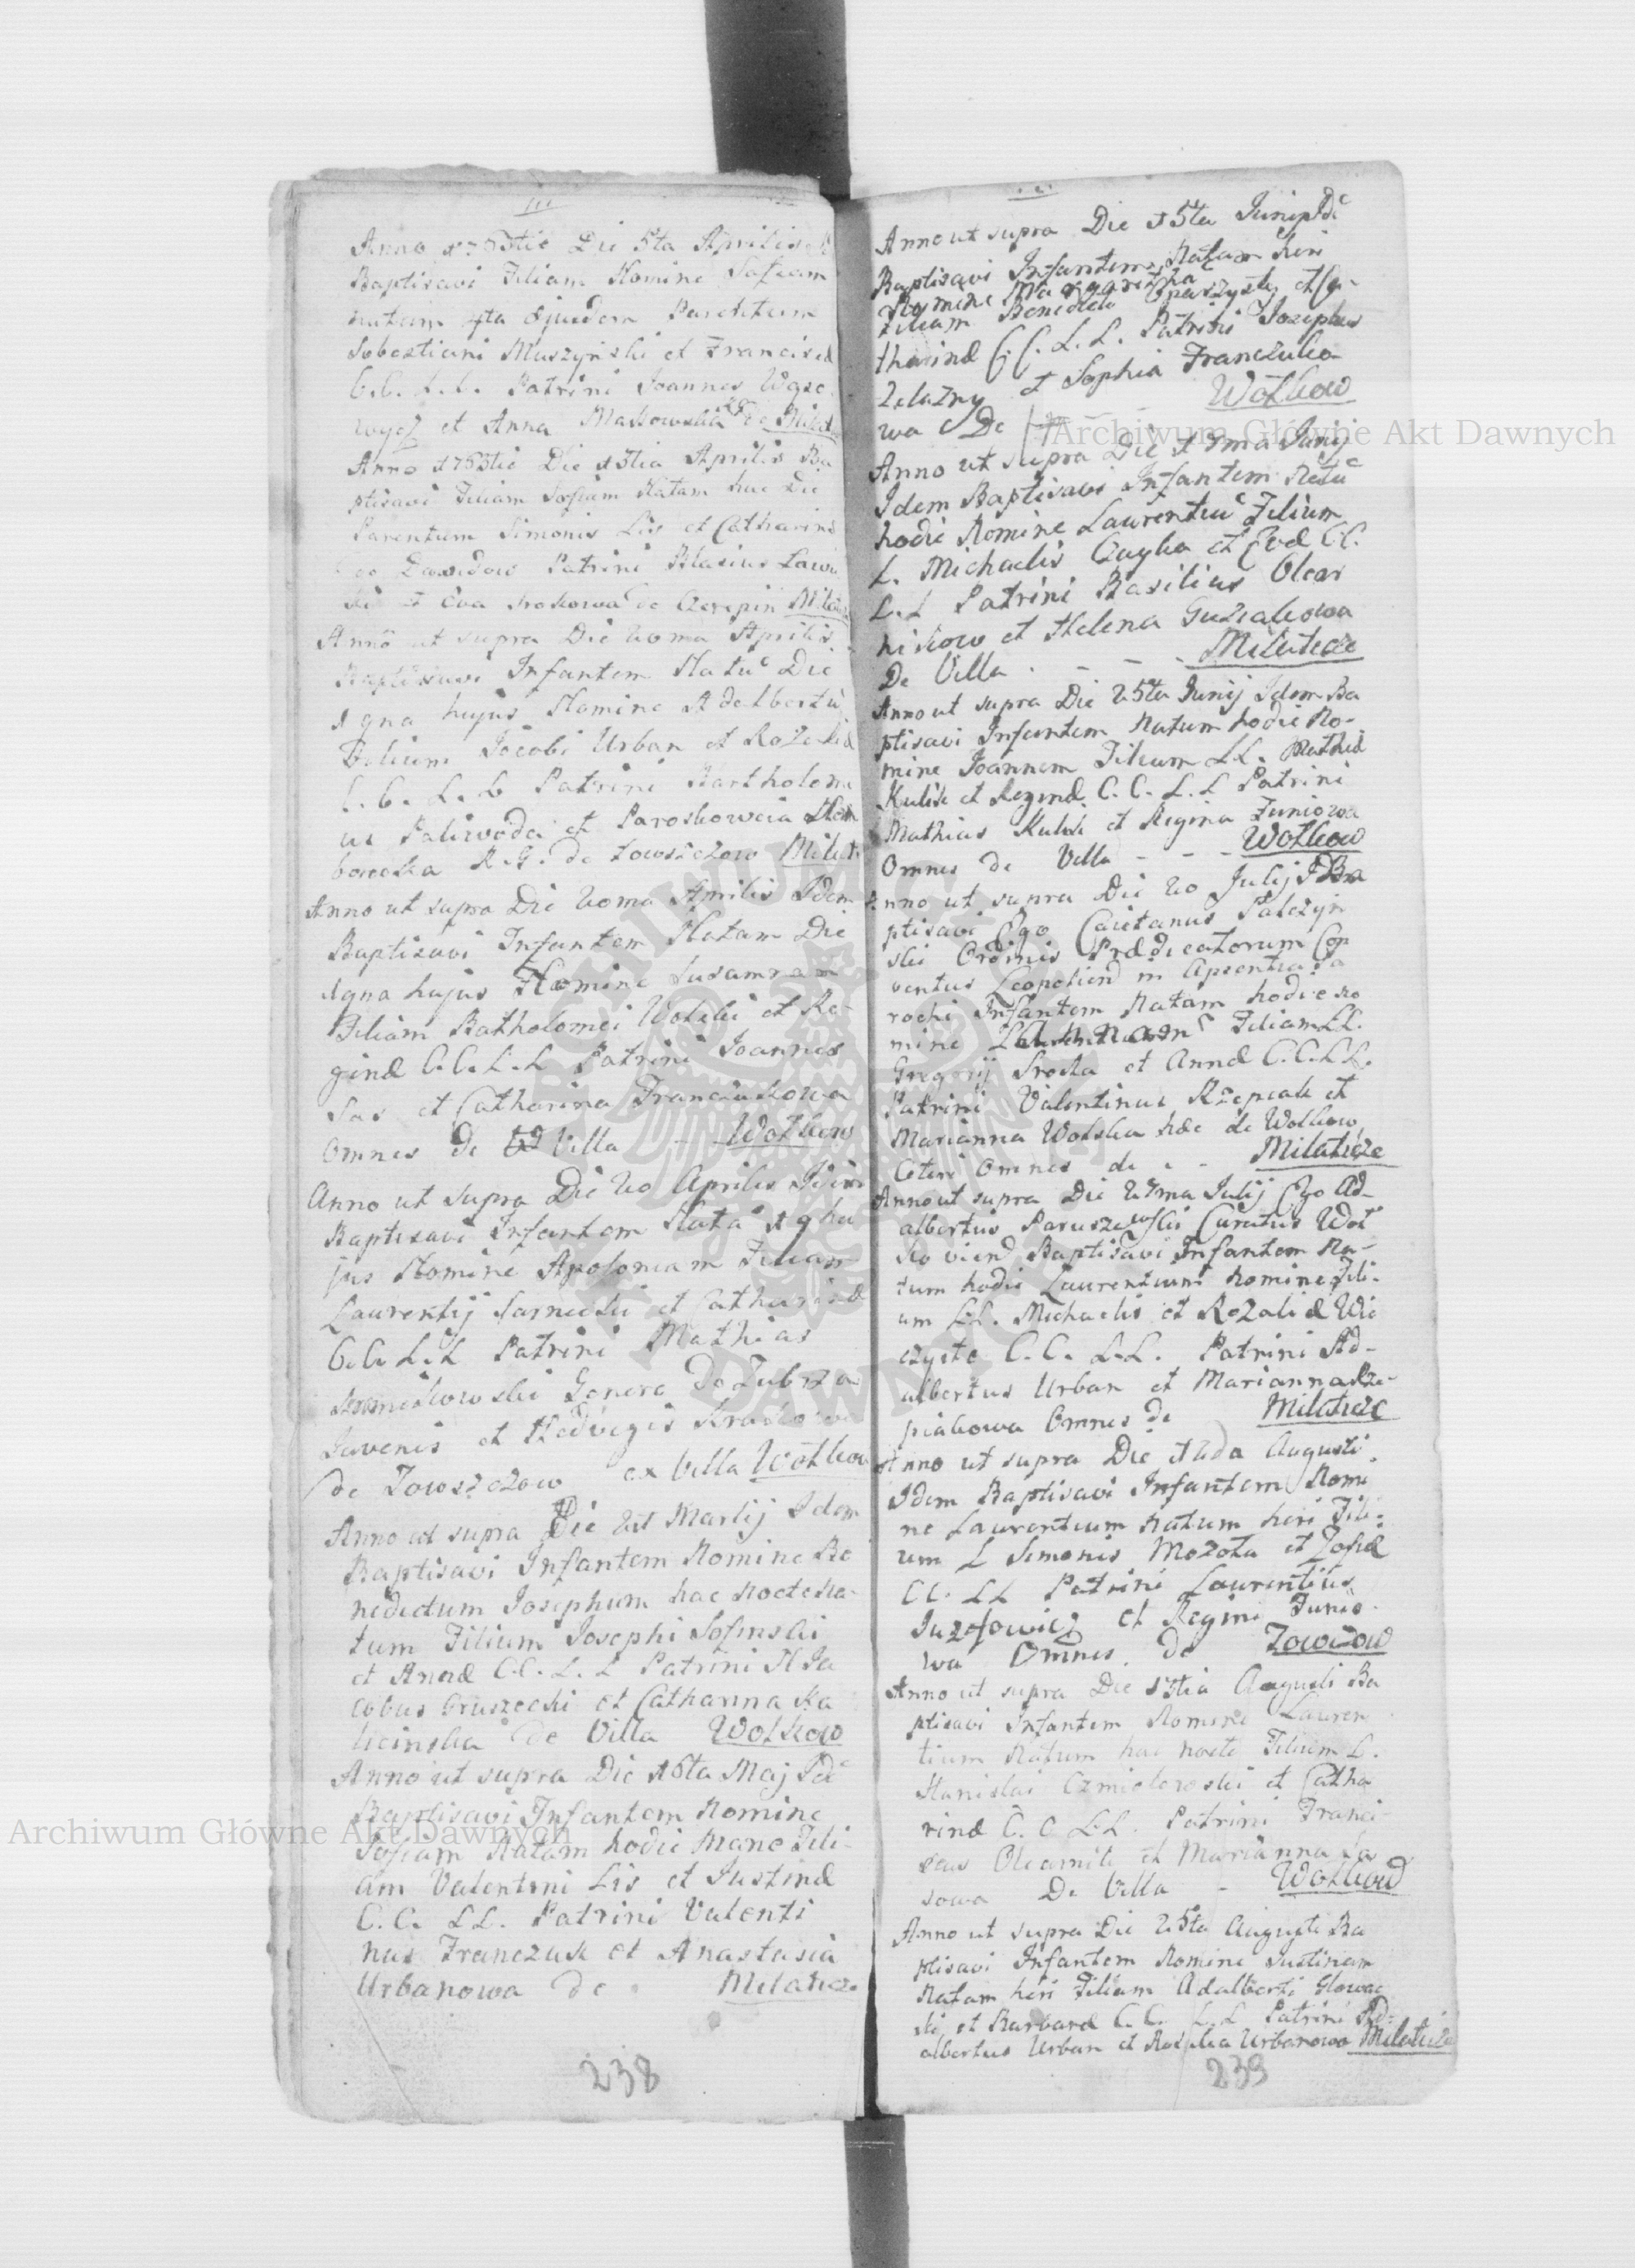 Anno 1753tio Die 5ta Aprilis
Baptisavi Filiam Nomine Sofiam
natam 4ta ejusdem Parentum
Sebastiani Muszyński et Francisc
C.C. L.L. Patrini Joannes Wąso
wycz et Anna Maskowska de Milat
Anno 1753tio Die 13tia Aprilis Ba
ptisavi Filiam Sofiam Natam hac Die
Parentum Simonis Lis et Catharinæ
Dawidow Patrini Blasius
et Eva Srokowa de Czerepin Milat
Anno ut supra Die 20ma Aprilis
Baptisavi Infantem Natū Die
19na hujus Nomine Adalbertū
Filium Jacobi Urban et Rozaliæ
C.C. L.L Patrini Bartholom
us Paliwoda et Paroskowia
R.G. de Towszczow Milat
Anno ut supra Die 20ma Aprilis Idem
Baptisavi Infantem Natam Die
19na hujus Nomine Susannam
Filiam Batholomei Wolski et Re-
ginæ C.C. L.L Patrini Joannes
Sas et Catharina Franczukowa
Omnes de Villa - Wołkow
Anno ut supra Die 20 Aprilis Idem
Baptisavi Infantem Natā 19 hu
jus Nomine Apoloniam Filiam
Laurentij Sarnecki et Catharinæ
C.C. L.L Patrini Mathias
Genere De Zubrza
Juvenis et Hedvigis
de Towszczow ex Villa Wołkow
Anno ut supra Die 21 Martij Idem
Baptisavi Infantem Nomine Be
nedictum Josephum hac nocte na-
tum Filium Josephi Sosinski
et Annæ C.C. L.L Patrini Ja
cobus Gruszecki et Catharina Ka
licinska de Villa Wołkow
Anno ut supra Die 16ta Maj Idē
Baptisavi Infantem Nomine
Sofiam Natam hodie Mane Fili-
am Valentini Lis et Justinæ
C.C. LL. Patrini Valenti
nus Franczuk et Anastasia
Urbanowa de Milaticze
238
Anno ut supra Die 15ta Junij Idē
Baptisavi Infantem Natam heri
Nomine Margaritha
Filiam Benedicti et Ca-
tharinæ C.C. L.L. Patrini Josephus
Zelazny et Sophia Franczuko
wa De - - Wołkow
Anno ut supra Die 17ma Junij
Idem Baptisavi Infantem Natū
hodie Nomine Laurentiū Filium
L. Michaelis Cuyka et Evæ C.C.
L.L Patrini Basilius Olear
nikow et Helena Guzialkowa
De Villa - - - Milaticze
Anno ut supra Die 25ta Junij Idem Ba
ptisavi Infantem Natum hodie No-
mine Joannem Filium LL. Mathiæ
Kulik et Reginæ C.C. L.L Patrini
Mathias Kulik et Regina Juniowa
Omnes de Villa - - - Wołkow
Anno ut supra Die 20 Julij Ba
ptisavi Ego Caietanus Palczyn
ski Ordinis Prædicatorum Con
ventus Leopoliens in Apsentia Pa
rochi Infantem Natam hodie no
mine Filiam LL.
Gregorij Sroka et Annæ C.C. L.L.
Patrini Valentinus Rzepcak et
Marianna Wolska hæc de Wolkow
Ceteri Omnes de - - Milaticze
Anno ut supra Die 27ma Julij Ego Ad-
albertus Paruszewski Curatus Woł
koviens Baptisavi Infantem Na-
tum hodie Laurentium Nomine Fili-
um LL. Michaelis et Rozaliæ Wie
czyste C.C. L.L. Patrini Ad-
albertus Urban et Marianna Rze-
piakowa Omnes de Milaticze
Anno ut supra Die 12da Augusti
Idem Baptisavi Infantem Nomi
ne Laurentium Natum heri Fili-
um L Simonis Mozota et Zofiæ
CC. LL Patrini Laurentius
Juzefowicz et Regina Junio-
wa Omnes de Towszow
Anno ut supra Die 13tia Augusti Ba
ptisavi Infantem Nomine Lauren
tium Natum hac nocte Filium L.
Stanislai et Catha
rinæ C.C LL. Patrini Franci
scus Olearnik et Marianna Sa
sowa De Villa - Wołkow
Anno ut supra Die 25ta Augusti Ba
ptisavi Infantem Nomine Justinam
Natam heri Filiam Adalberti Glowac
ki et Barbaræ C.C. L.L Patrini Ad-
albertus Urban et Rozalia Urbanowa Milaticze
239
Archiwum Główne Akt Dawnych
Archiwum Główne Akt Dawnych